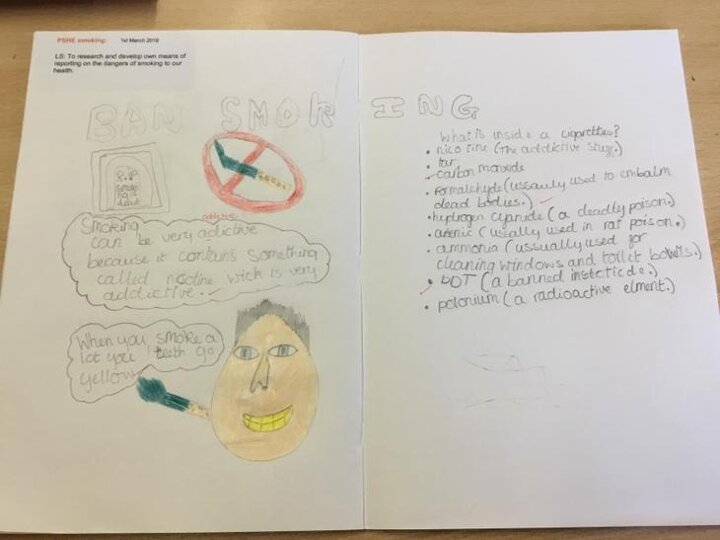 PSHE smoking: 1st March 2019
LS: To research and develop own means of
reporting on the dangers of smoking to our
health.
BAN SMOKING
R.I.P
Smoking
addictive
Smoking
can be very adictive
because it contains something
called nicotine wich is very
addictive.
When you smoke a
lot your teeth go
yellow
What is inside a cigarette?
• nicotine (The addictive stuff.)
• tar
• carbon monoxide
• Formaldehyde (usaully used to embalm
dead bodies.)
• hydrogen cyanide (a deadly poison.)
• arsenic (usally used in rat poison.)
• ammonia (ussually used for
cleaning windows and toilet bowls.)
• DDT (a banned insecticide.)
• polonium (a radioactive elment.)